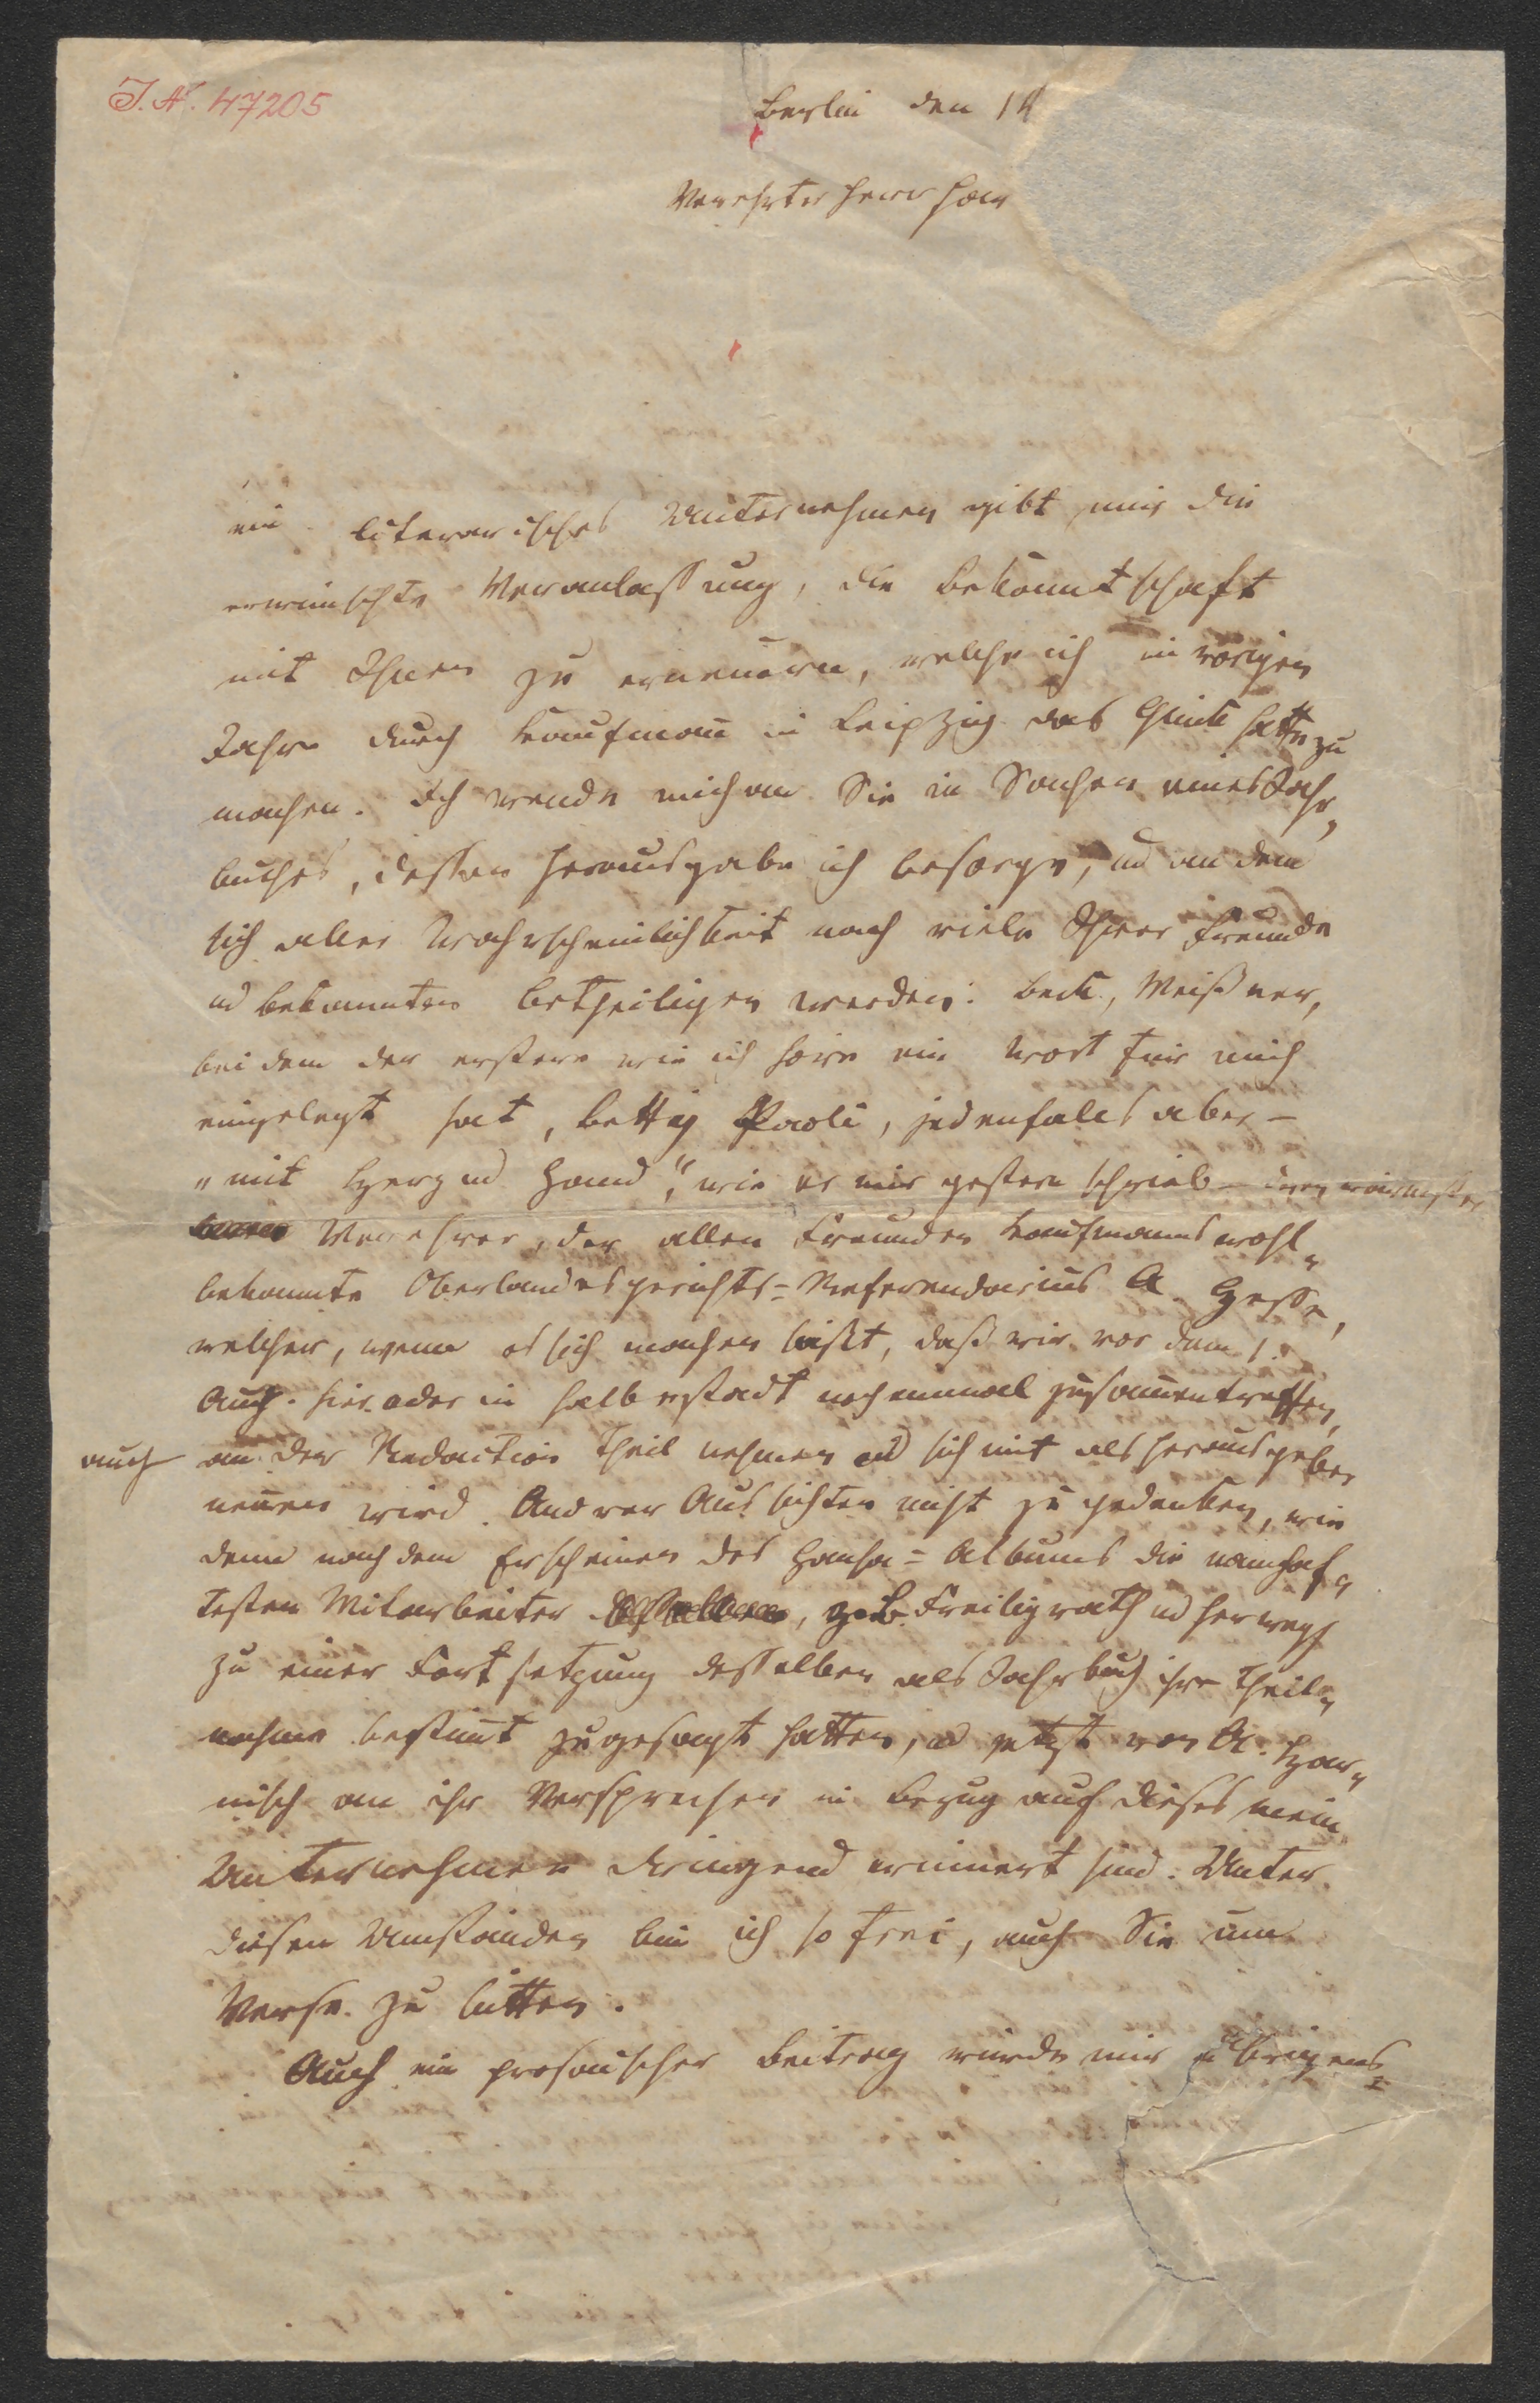 I. N. 47205
Berlin den 14
Verehrter Herr Har
ein literarisches Unternehmen gibt mir die
erwünschte Veranlassung, die Bekanntschaft
mit Ihnen zu erneuern, welche ich im vorigen
Jahre durch Kaufmann in Leipzig das Glück hatte zu
machen. Ich wende mich an Sie in Sachen eines Jahr„
buches, dessen Herausgabe ich besorge, ud an dem
sich aller Wahrscheinlichkeit nach viele Ihrer Freunde
ud Bekannten betheiligen werden: Beck, Meißner,
bei dem der erstere wie ich höre ein Wort für mich
eingelegt hat, Betty Paoli, jedenfalls aber –
„mit Herz ud Hand“, wie er mir gestern schrieb – Ihren wärmster
Verehrer, der allen Freunden Kaufmanns wohl„
bekannte Oberlandesgerichts=Referendarius A. Hesse,
welcher, wenn es sich machen läßt, daß wir vor dem 1.
Aug. hier oder in Halberstadt noch einmal zusammentreffen,
auch an der Redaction Theil nehmen ud sich mit als Herausgeber
nennen wird. Andrer Aussichten nicht zu gedenken, wie
denn nach dem Erscheinen des Hansa=Albums die namhaf„
testen Mitarbeiter , z. B. Freiligrath ud Herwegh
zu einer Fortsetzung desselben als Jahrbuch ihre Theil„
nahme bestimmt zugesagt hatten, ud jetzt von A. Har„
nisch an ihr Versprechen in Bezug auf dieses mein
Unternehmen dringend erinnert sind. Unter
diesen Umständen bin ich so frei, auch Sie um
Verse zu bitten.
Auch ein prosaischer Beitrag würde mir übrigens